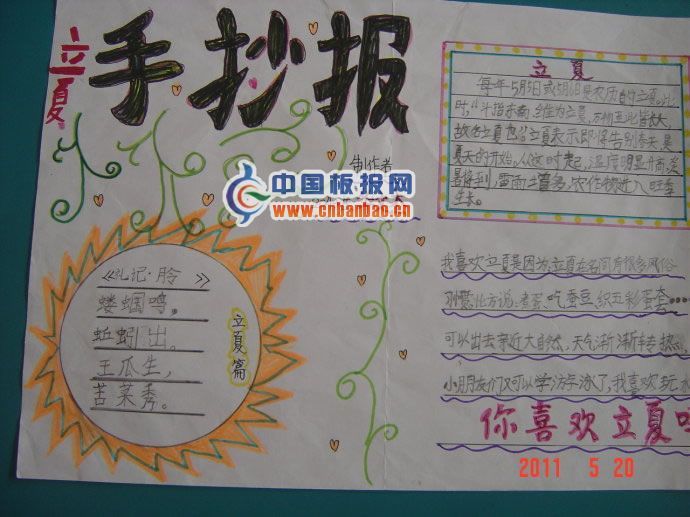 立夏
手抄报
制作者
中国板报网
www.cnbanbao.cn
《礼记·
蝼蝈鸣，
蚯蚓出。
王瓜生，
苦菜秀。
立夏篇
立夏
每年5月5日或5月6日是农历的立夏。
时，“斗指东南，维为立夏，万物至此皆长大，
故名立夏也。”立夏表示即将告别春天，是
夏天的开始。从这时起，温度明显升高，炎
暑将到，雷雨增多，农作物进入旺季
生长。
我喜欢立夏是因为，立夏在名间有很多风俗
比方说：煮蛋、吃蚕豆、织五彩蛋套……
可以出去亲近大自然，天气渐渐转热，
小朋友们又可以学游泳了，我喜欢玩水
你喜欢立夏吗
2011 5 20